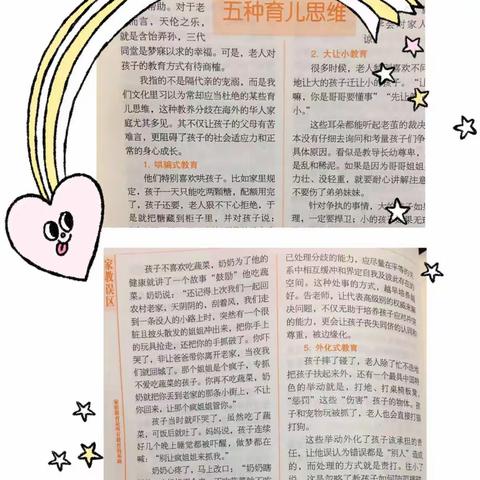 五种育儿思维
帮助。对于老
而言,天伦之乐,
就是含饴弄孙,三代
同堂是梦寐以求的幸福。可是,老人对
孩子的教育方式有待商榷。
我指的不是隔代亲的宠溺,而是我
们文化里习以为常却应当杜绝的某些育
儿思维,这种教养分歧在海外的华人家
庭尤其多见。其不仅让孩子的父母有苦
难言,更阻碍了孩子的社会适应力和正
常的身心成长。
1. 哄骗式教育
他们特别喜欢哄孩子。比如家里规
定,孩子一天只能吃两颗糖,配额用完
了,孩子还要,老人狠不下心拒绝,于
是就把糖藏到柜子里,并对孩子说:
2. 大让小教育
很多时候,老人
地让大的孩子迁让小的孩子。“让
嘛,你是哥哥要懂事”“先让
小。”
这些耳朵都能听起老茧的裁决
本没有仔细去询问和考量孩子们争
具体原因。看似是教导长幼尊卑,
是乱和稀泥。如果是因为哥哥姐姐
力壮、没轻重,就要耐心讲解注意
不要伤了弟弟妹妹。
针对争执的事情,大的孩子如
理,一定要捍卫;小的孩子如果无
家教误区
孩子不喜欢吃蔬菜,奶奶为了他的
健康就讲了一个故事“鼓励”他吃蔬
菜。奶奶说:“还记得上次我们一起回
农村老家,天阴阴的,刮着风,我们走
到一条没人的小路上时,突然有一个很
脏且披头散发的姐姐冲出来,把你手上
的玩具抢走,还把你的手抓破了。你吓
哭了,非让爸爸带你离开老家,当夜我
们就回城了。那个姐姐是个疯子,专抓
不爱吃蔬菜的孩子。你再不吃蔬菜,奶
奶就把你丢到老家的那条小街上,不让
你回来,让那个疯姐姐管你。”
孩子当时就吓哭了,虽然吃了蔬
菜,可饭后就吐了。妈妈说,孩子连续
好几个晚上睡觉都被吓醒,做梦都在
喊:“别让疯姐姐来抓我。”
奶奶心疼了,马上改口:“奶奶瞎
己处理分歧的能力,应尽量在平等的关
系中相互缓冲和界定自我及彼此存在的
空间。这种处事的方式,越早培养越
好。告老师、让代表高级别的权威来解
决问题,不仅无助于培养孩子应对冲突
的能力,更会让孩子丧失同侪的认同和
尊重,被边缘化。
5. 外化式教育
孩子摔了碰了,老人除了忙不迭地
把孩子扶起来外,还有一个最具中国特
色的举动就是,打地、打桌椅板凳,
“惩罚”这些“伤害”孩子的物体。
子和宠物玩被抓了,老人也会直接打猫
打狗。
这些举动外化了孩子该承担的责
任,让他误认为错误都是“别人”造成
的,而处理的方式就是责打。往小了
说,这是忽略了教孩子如何防范碰磕